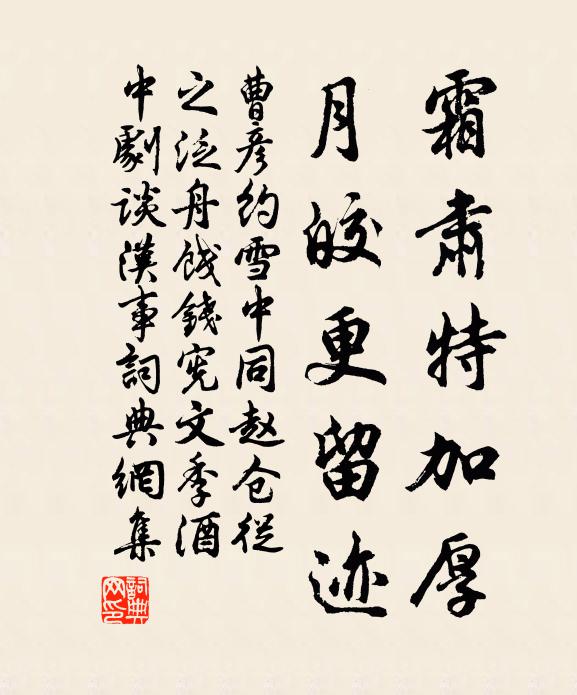 霜肃特加厚
月皎更留迹
曹彦约雪中同赵仓従
之泛舟饯錢宪文季酒
中劇谈漢事詞典網集
詞典网印